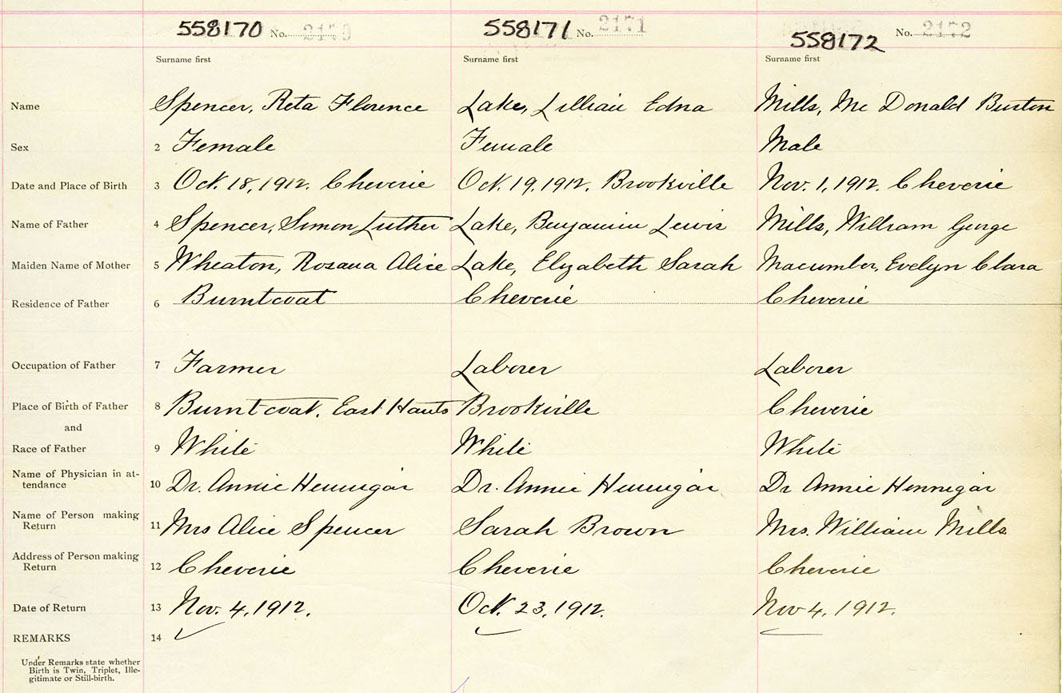 558170 No. 2170 558171 No. 2171 558172 No. 2172
Surname first Surname first Surname first
Name Spencer, Reta Florence Lake, Lillian Edna Mills, Mc Donald Burton
Sex 2 Female Female Male
Date and Place of Birth 3 Oct. 18, 1912. Cheverie Oct. 19, 1912. Brookville Nov. 1, 1912. Cheverie
Name of Father 4 Spencer, Simon Luther Lake, Benjamin Lewis Mills, William George
Maiden Name of Mother 5 Wheaton, Rosana Alice Lake, Elizabeth Sarah Macumber, Evelyn Clara
Residence of Father 6 Burntcoat Cheverie Cheverie
Occupation of Father 7 Farmer Laborer Laborer
Place of Birth of Father 8 Burntcoat, East Hants Brookville Cheverie
and
Race of Father 9 White White White
Name of Physician in at-
tendance 10 Dr. Annie Hennigar Dr. Annie Hennigar Dr Annie Hennigar
Name of Person making
Return 11 Mrs Alice Spencer Sarah Brown Mrs. William Mills
Address of Person making
Return 12 Cheverie Cheverie Cheverie
Date of Return 13 Nov. 4, 1912. Oct. 23, 1912. Nov 4, 1912.
REMARKS 14
Under Remarks state whether
Birth is Twin, Triplet, Ille-
gitimate or Still-birth.